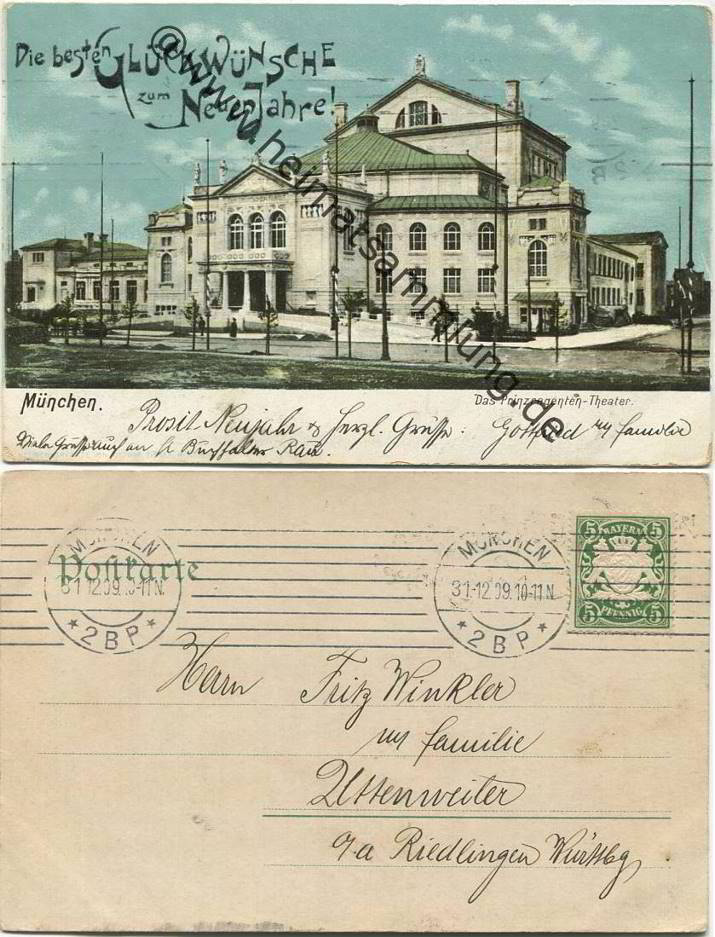 Die besten GLÜCKWÜNSCHE
zum Neuen Jahre!
© www.heimatsammlung.de
München.
Das Prinzregenten-Theater.
Prosit Neujahr & Herzl. Grüsse: Gottfried m/ familie
Viele Grüsse auch an
Postkarte
MÜNCHEN
31.12.09.10-11N.
* 2 B P *
MÜNCHEN
31.12.09.10-11N.
* 2 B P *
5 BAYERN 5
5 PFENNIG 5
Herrn Fritz Winkler
m/ familie
Uttenweiler
o/a Riedlingen Württbg